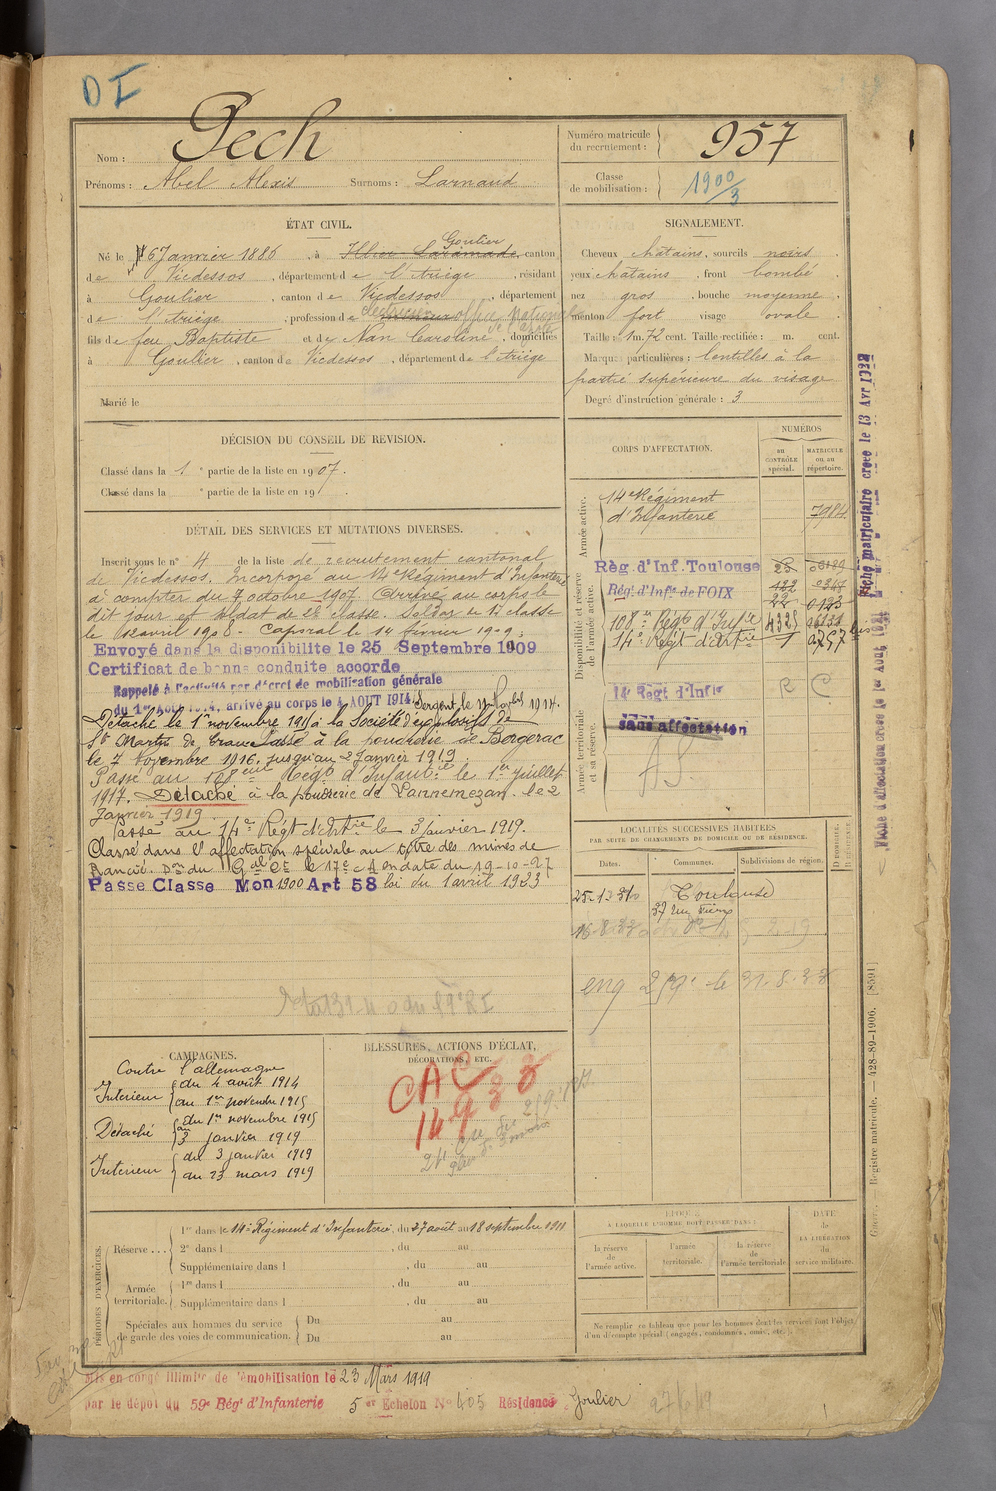 DI
Nom : Pech
Prénoms : Abel Alexis Surnoms : Larnaud
Numéro matricule du recrutement : 957
Classe de mobilisation : 1900/3
ÉTAT CIVIL.
Né le 6 Janvier 1886, à Illier Laramade Goulier, canton
de Vicdessos, département de l'Ariège, résidant
à Goulier, canton de Vicdessos, département
de l'Ariège, profession de office National de l'azote
fils de feu Baptiste et de Nan Caroline, domiciliés
à Goulier, canton de Vicdessos, département de l'Ariège
Marié le
SIGNALEMENT.
Cheveux chatains, sourcils noirs
yeux chatains, front bombé
nez gros, bouche moyenne
menton fort visage ovale
Taille : 1 m. 72 cent. Taille rectifiée : m. cent.
Marques particulières : lentilles à la
partie supérieure du visage
Degré d'instruction générale : 3
DÉCISION DU CONSEIL DE REVISION.
Classé dans la 1e partie de la liste en 1907.
Classé dans la e partie de la liste en 19 .
DÉTAIL DES SERVICES ET MUTATIONS DIVERSES.
Inscrit sous le n° 4 de la liste de recrutement cantonal
de Vicdessos. Incorporé au 14e Régiment d'Infanterie
à compter du 7 octobre 1907. Arrivé au corps le
dit jour et soldat de 2e classe. Soldat de 1e classe
le 12 avril 1908. Caporal le 14 février 1909.
Envoyé dans la disponibilite le 25 Septembre 1909
Certificat de bonne conduite accorde
Rappelé à l'activité par décret de mobilisation générale
du 1er Août 1914, arrivé au corps le 4 AOUT 1914. Sergent, le 1914.
Détaché le 1er novembre 1915 à la Société d'explosifs de
St Martin de Crau. Passé à la poudrerie de Bergerac
le 7 Novembre 1916, jusqu'au 2 Janvier 1919.
Passé au 108eme Régt d'Infanterie le 1er juillet
1917. Détaché à la poudrerie de Lannemezan le 2
Janvier 1919.
Passé au 14e Régt d'Artie le 3 Janvier 1919.
Classé dans l'affectation spéciale au titre des mines de
Rancié. Don du Gal Ct le 17e CA en date du 19-10-27
Passé Classe Mon 1900 Art 58 loi du 1 avril 1923
CORPS D'AFFECTATION.
NUMÉROS
au CONTRÔLE spécial.
MATRICULE ou au répertoire.
Armée active.
14e Régiment
d'Infanterie 7984
Disponibilité et réserve de l'armée active.
Rég. d'Inf. Toulouse
Régt d'Infie de FOIX
108e Régt d'Infie 4328
14e Régt d'Artie 1
Armée territoriale et sa réserve.
14 Régt d'Infie R C
sans affectation
AS
LOCALITÉS SUCCESSIVES HABITÉES
PAR SUITE DE CHANGEMENTS DE DOMICILE OU DE RÉSIDENCE.
Dates. Communes. Subdivisions de région. D DOMICILE. R RÉSIDENCE.
Toulouse
eng 2/4 le 31.8.38
CAMPAGNES.
Contre l'allemagne
Intérieur du 4 août 1914
au 1er novembre 1915
Détaché du 1er novembre 1915
au 3 janvier 1919
Intérieur du 3 janvier 1919
au 23 mars 1919
BLESSURES, ACTIONS D'ÉCLAT,
DÉCORATIONS, ETC.
CAC
1933
PÉRIODES D'EXERCICES.
Réserve...
1re dans le 14e Régiment d'Infanterie, du 27 août au 18 septembre 1911
2e dans l , du au
Supplémentaire dans l , du au
Armée territoriale.
1re dans l , du au
Supplémentaire dans l , du au
Spéciales aux hommes du service de garde des voies de communication.
Du au
Du au
ÉPOQUE
A LAQUELLE L'HOMME DOIT PASSER DANS :
la réserve de l'armée active.
l'armée territoriale.
la réserve de l'armée territoriale
DATE de LA LIBÉRATION du service militaire.
Ne remplir ce tableau que pour les hommes dont les services font l'objet
d'un décompte spécial (engagés, condamnés, omis, etc.).
Mis en congé illimité de démobilisation le 23 Mars 1919
par le dépôt du 59e Rég' d'Infanterie 5er Échelon N° 405 Résidence Goulier
Fiche matriculaire créée le 13 Avr 1932
Fiche d'affectation créée le 1er Aout
Registre matricule. — 428-89-1906. [8591]